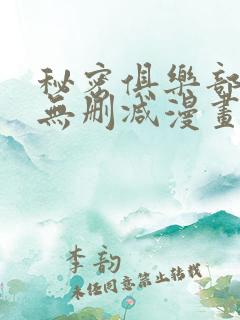 秘密俱樂部
無删减漫畫
李韵
未经同意禁止转载